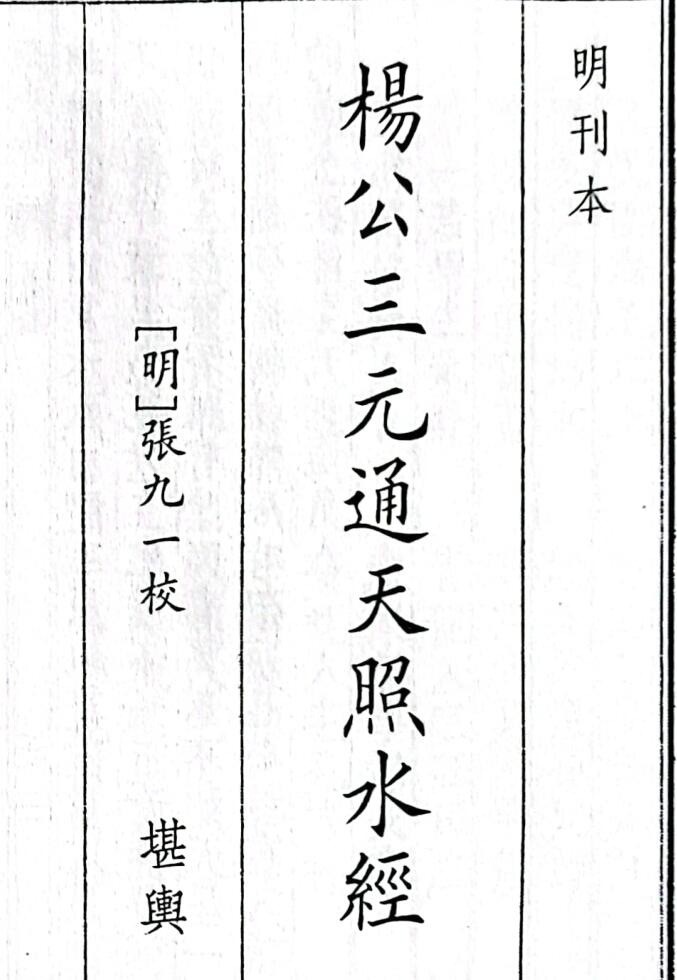 明刊本
楊公三元通天照水經
[明]張九一校 堪輿